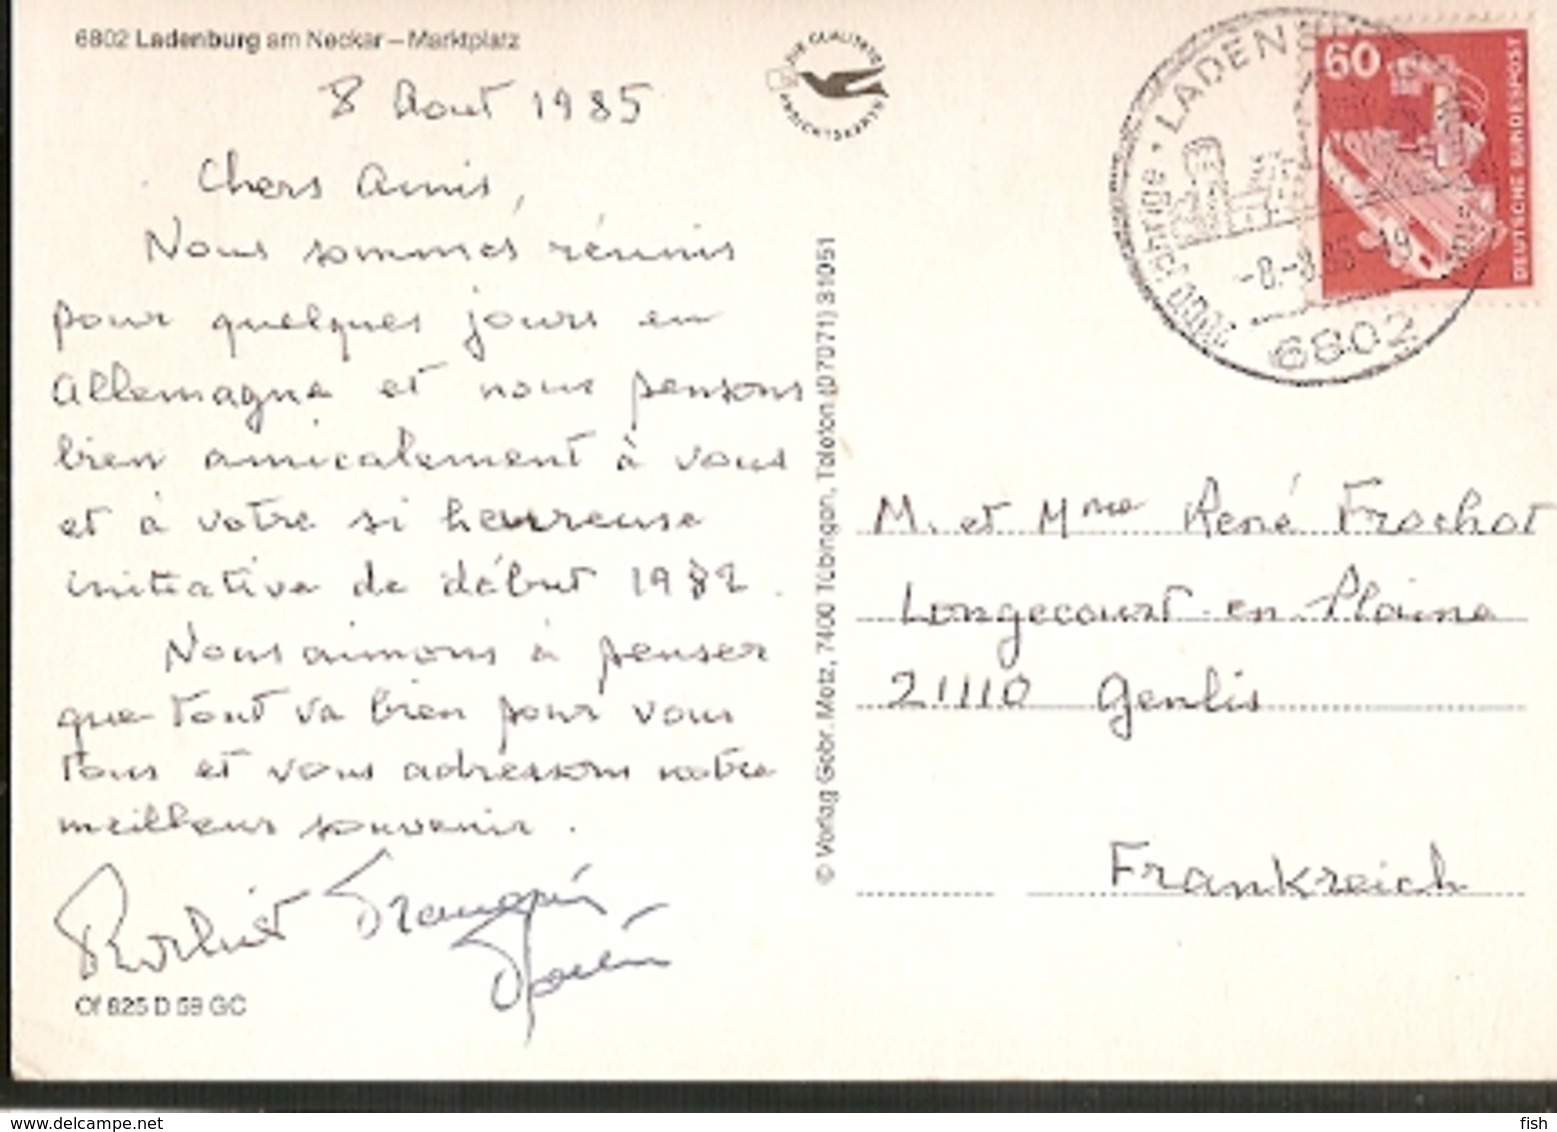 6802 Ladenburg am Neckar – Marktplatz
8 Aout 1985
Chers Amis,
Nous sommes réunis
pour quelques jours en
Allemagne et nous pensons
bien amicalement à vous
et à votre si heureuse
initiative de début 1982.
Nous aimons à penser
que tout va bien pour vous
tous et vous adressons notre
meilleur souvenir.
Of 825 D 59 GC
© Verlag Gebr. Metz, 7400 Tübingen, Telefon (07071) 31051
60
DEUTSCHE BUNDESPOST
-8.-8.85-19
6802
M. et Mme René Frochot
Longecourt en Plaine
21110 Genlis
Frankreich
www.delcampe.net
fish